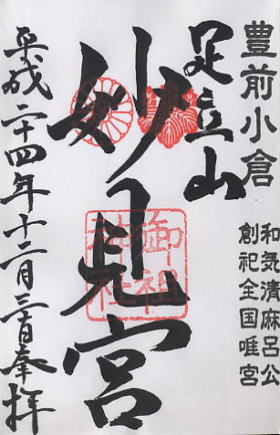 豊前小倉
和気清麻呂公
創祀全国唯宮
足立山
妙見宮
御祖神社
平成二十四年十二月三日奉拝